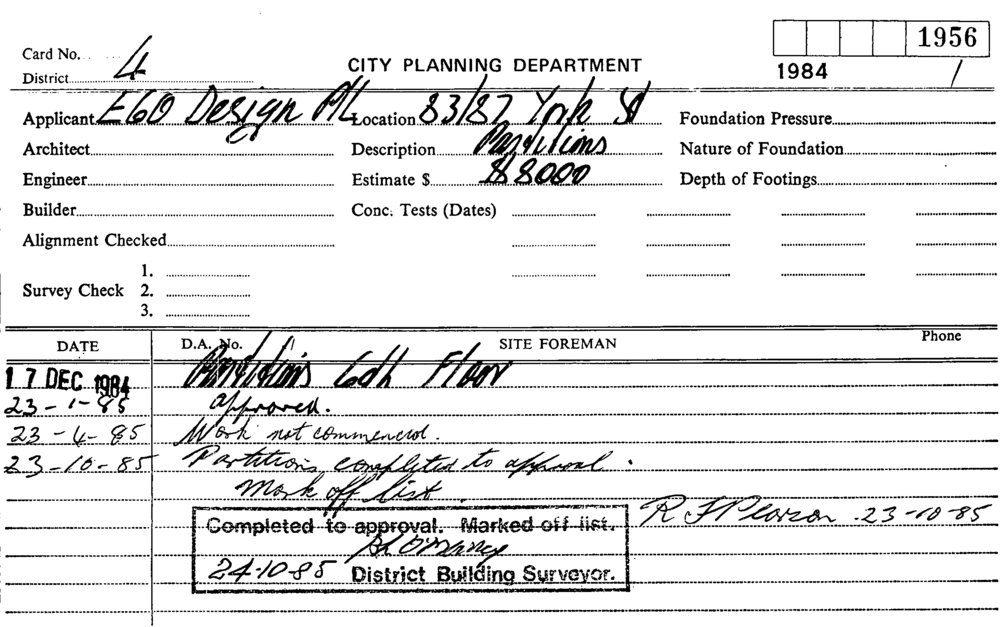 1956
Card No. 4
CITY PLANNING DEPARTMENT
1984
District
Applicant EGO Design P/L Location 83/87 York St Foundation Pressure
Architect Description Partitions Nature of Foundation
Engineer Estimate $ $8000 Depth of Footings
Builder Conc. Tests (Dates)
Alignment Checked
1.
Survey Check 2.
3.
DATE D.A. No. SITE FOREMAN Phone
17 DEC 1984 Partitions 6th Floor
23-1-85 approved.
23-4-85 Work not commenced.
23-10-85 Partitions completed to approval.
Mark off list.
Completed to approval. Marked off list. R F Pearson 23-10-85
24-10-85 District Building Surveyor.